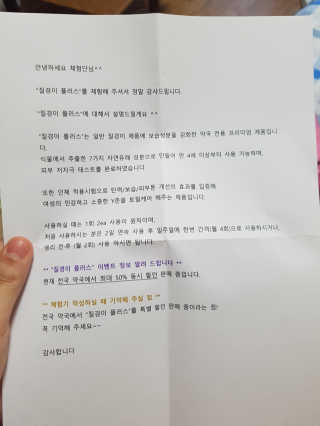 안녕하세요 체험단님^^
"질경이 플러스"를 체험해 주셔서 정말 감사드립니다.
"질경이 플러스"에 대해서 설명드릴게요 ^^
"질경이 플러스"는 일반 질경이 제품에 보습성분을 강화한 약국 전용 프리미엄 제품입니
다.
식물에서 추출한 7가지 자연유래 성분으로 만들어 만 4세 이상부터 사용 가능하며,
피부 저자극 테스트를 완료하였습니다.
또한 인체 적용시험으로 탄력/보습/피부톤 개선의 효과를 입증해
여성의 민감하고 소중한 Y존을 토탈케어 해주는 제품입니다.
사용하실 때는 1회 2ea 사용이 원칙이며,
처음 사용하시는 분은 2일 연속 사용 후 일주일에 한번 간격(월 4회)으로 사용하시거나,
생리 전·후 (월 2회) 사용 하시면 됩니다.
** "질경이 플러스" 이벤트 정보 알려 드립니다 **
현재 전국 약국에서 최대 50% 동시 할인 판매 중입니다.
** 체험기 작성하실 때 기억해 주실 점 **
전국 약국에서 "질경이 플러스"를 특별 할인 판매 중이라는 점!
꼭 기억해 주세요~~
감사합니다